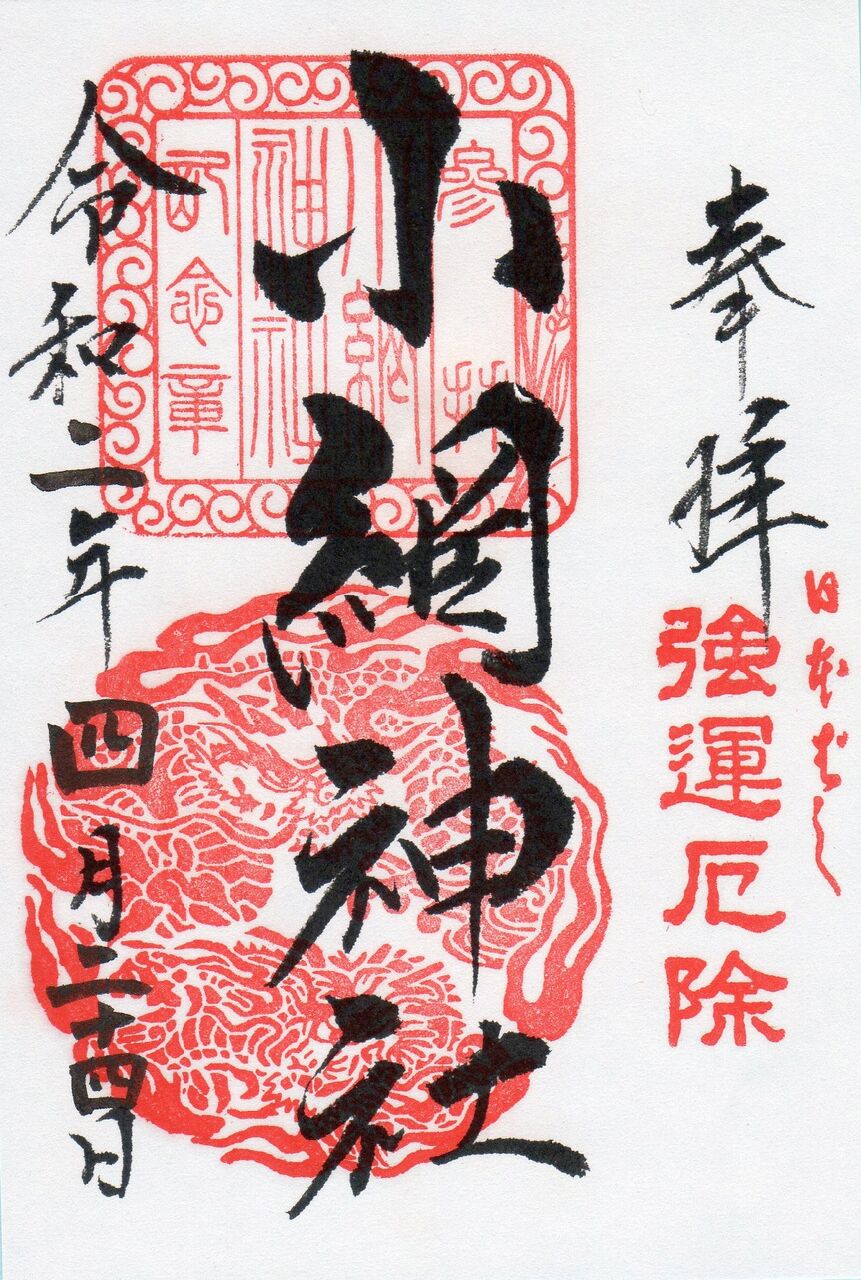 奉拝
日本ばし
強運厄除
小網神社
参拝
小網
神社
記念章
令和二年四月二十四日